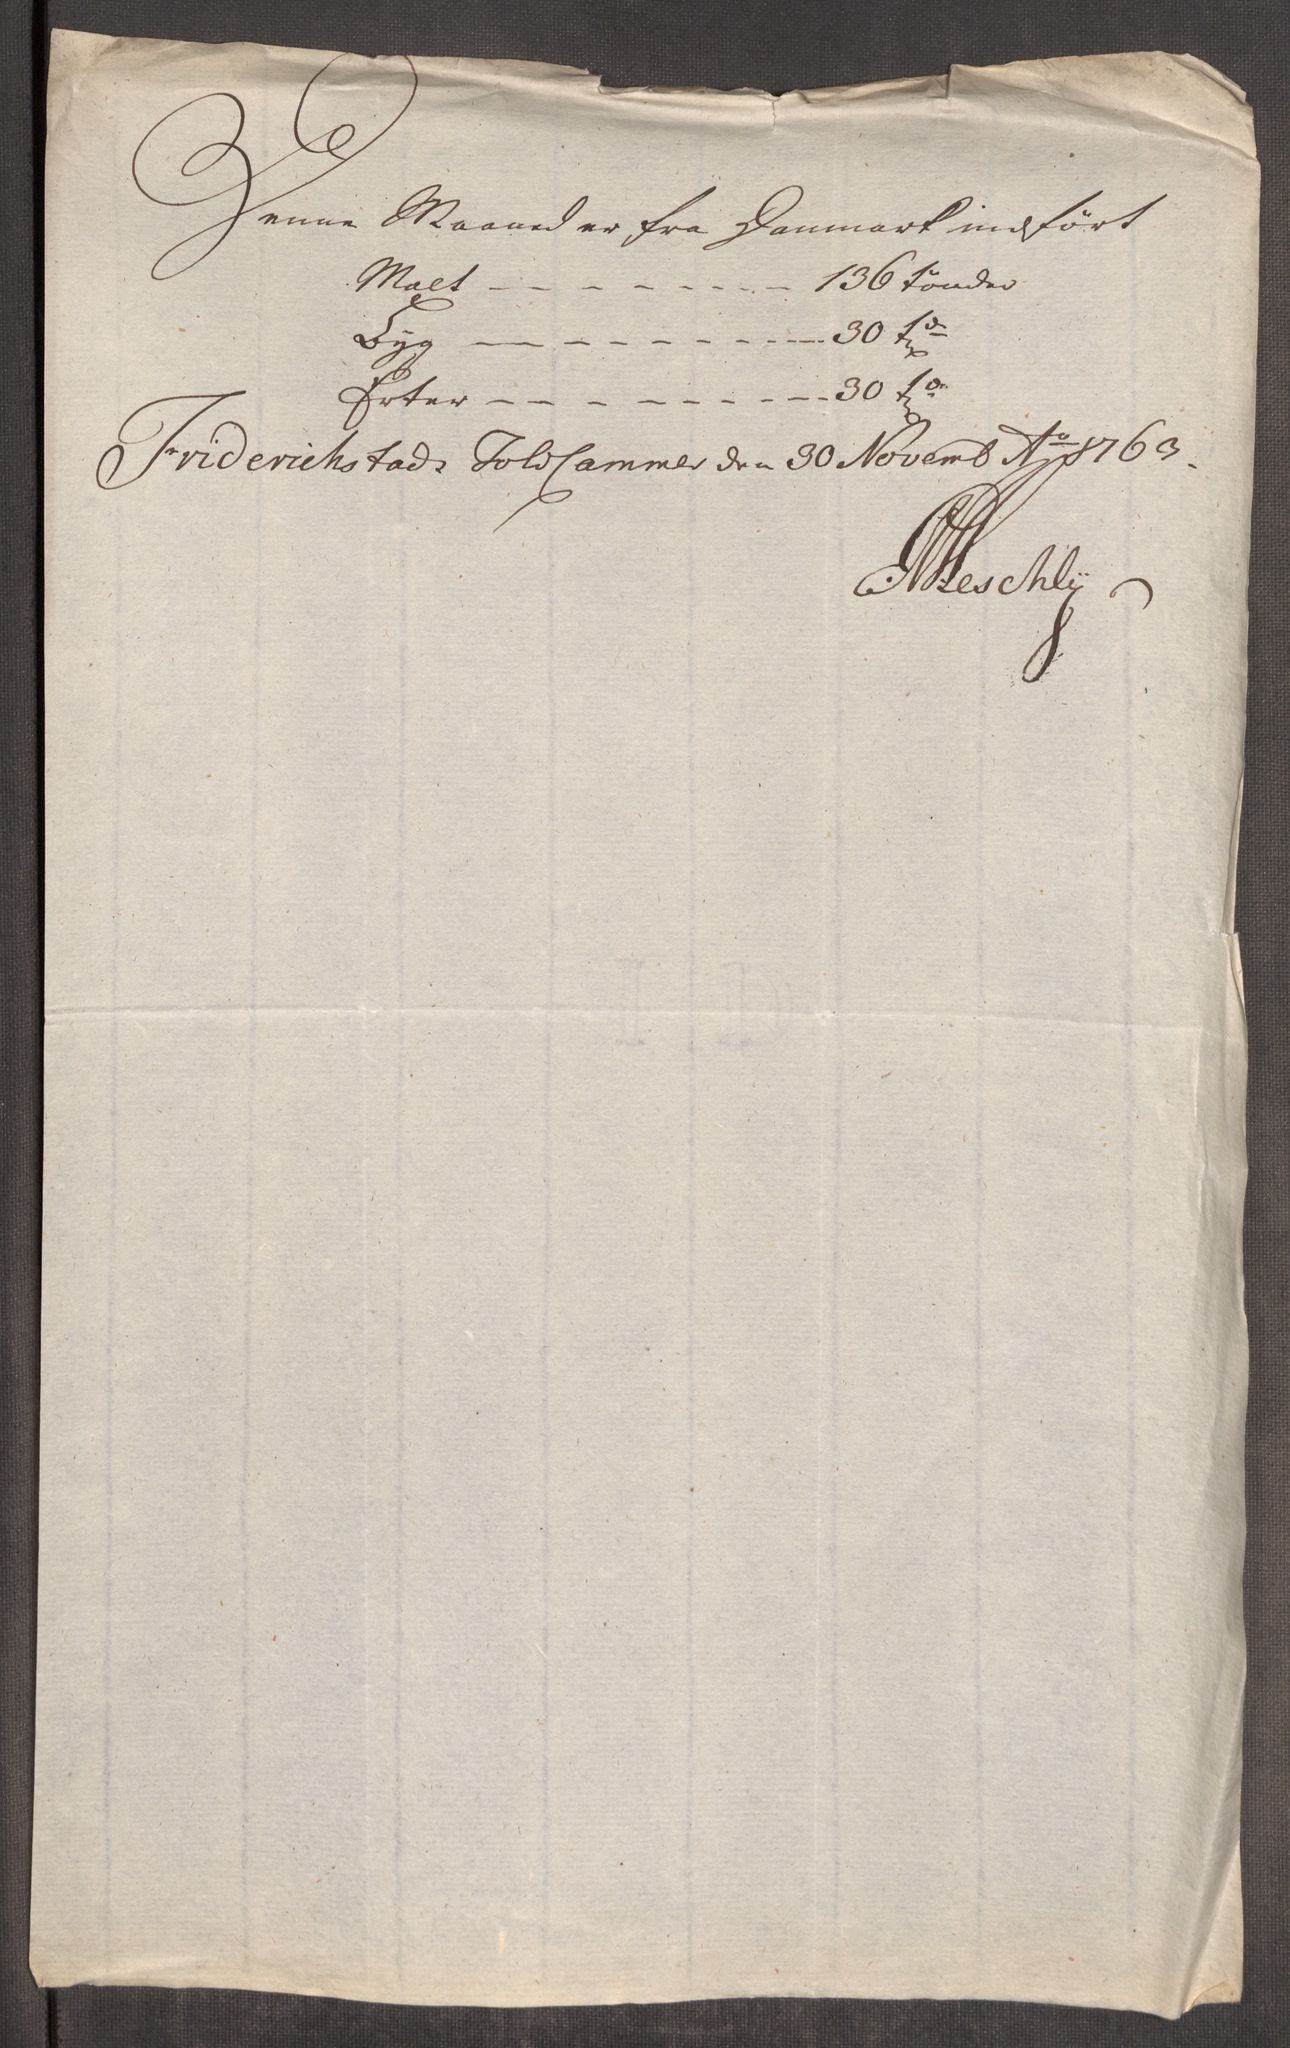 Denne Maaned er fra Danmark indført
Malt - - - - - - - - 136 tønder
Byg - - - - - - - - - 30 td
Erter - - - - - - - - - 30 td
Friderichstads Told Cammer den 30 Novemb Ao 1763.